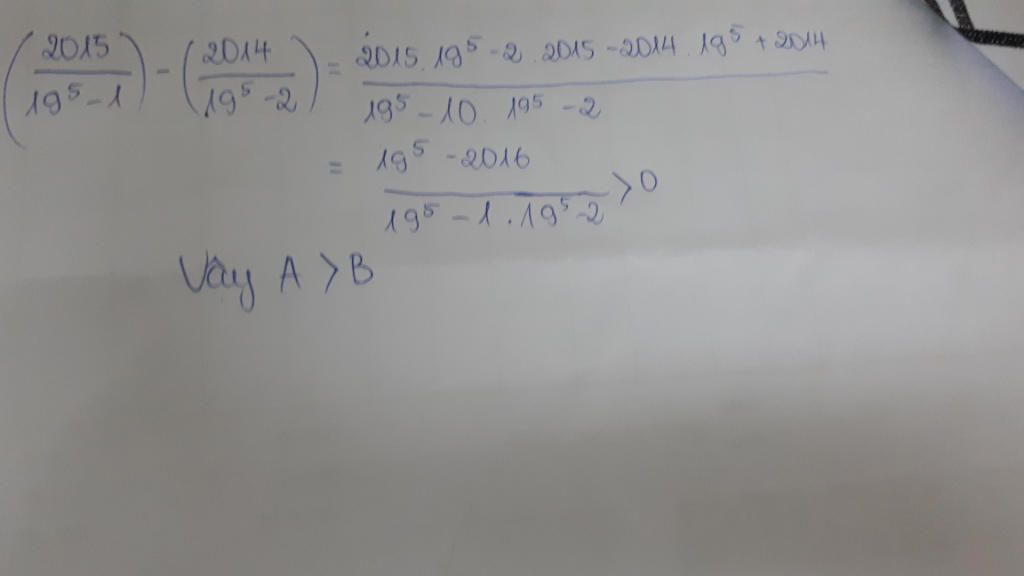 (2015/19⁵-1) - (2014/19⁵-2) = 2015.19⁵-2.2015-2014.19⁵+2014/19⁵-10.19⁵-2
= 19⁵-2016/19⁵-1.19⁵-2 >0
Vây A > B